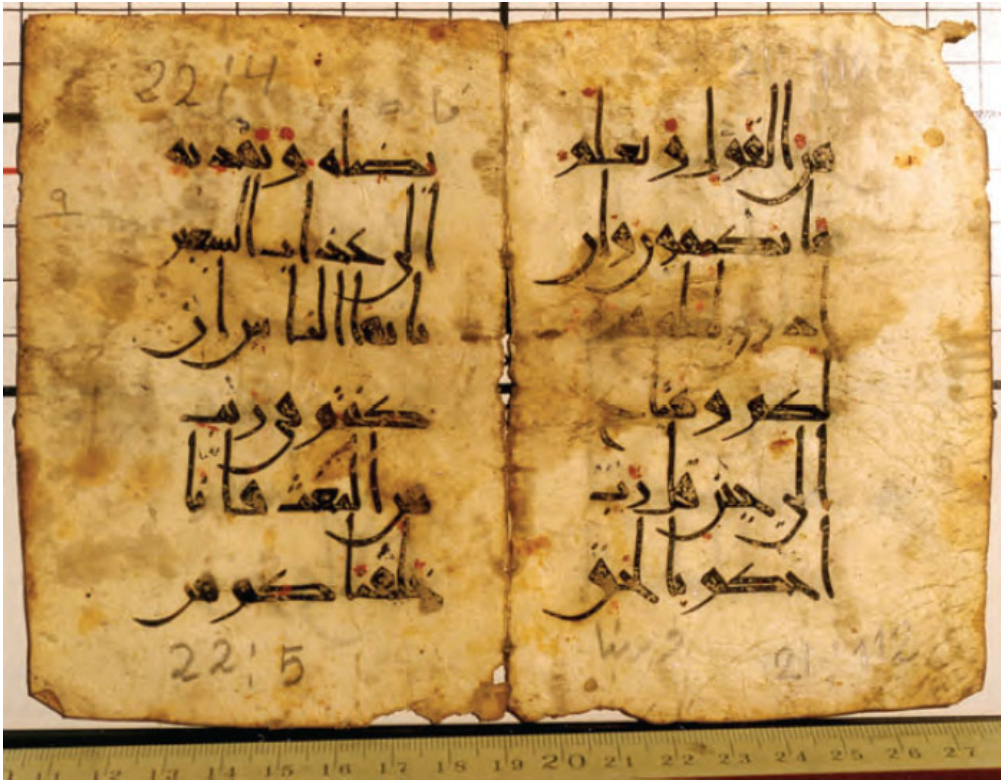 من القول ويعلم
ما تكتمون وان
ادري لعله فتنة
لكم ومتاع
الى حين قل رب
احكم بالحق
21:112
22:4
يضله ويهديه
الى عذاب السعير
يايها الناس ان
كنتم في ريب
من البعث فانا
خلقناكم من
22:5
11 12 13 14 15 16 17 18 19 20 21 22 23 24 25 26 27